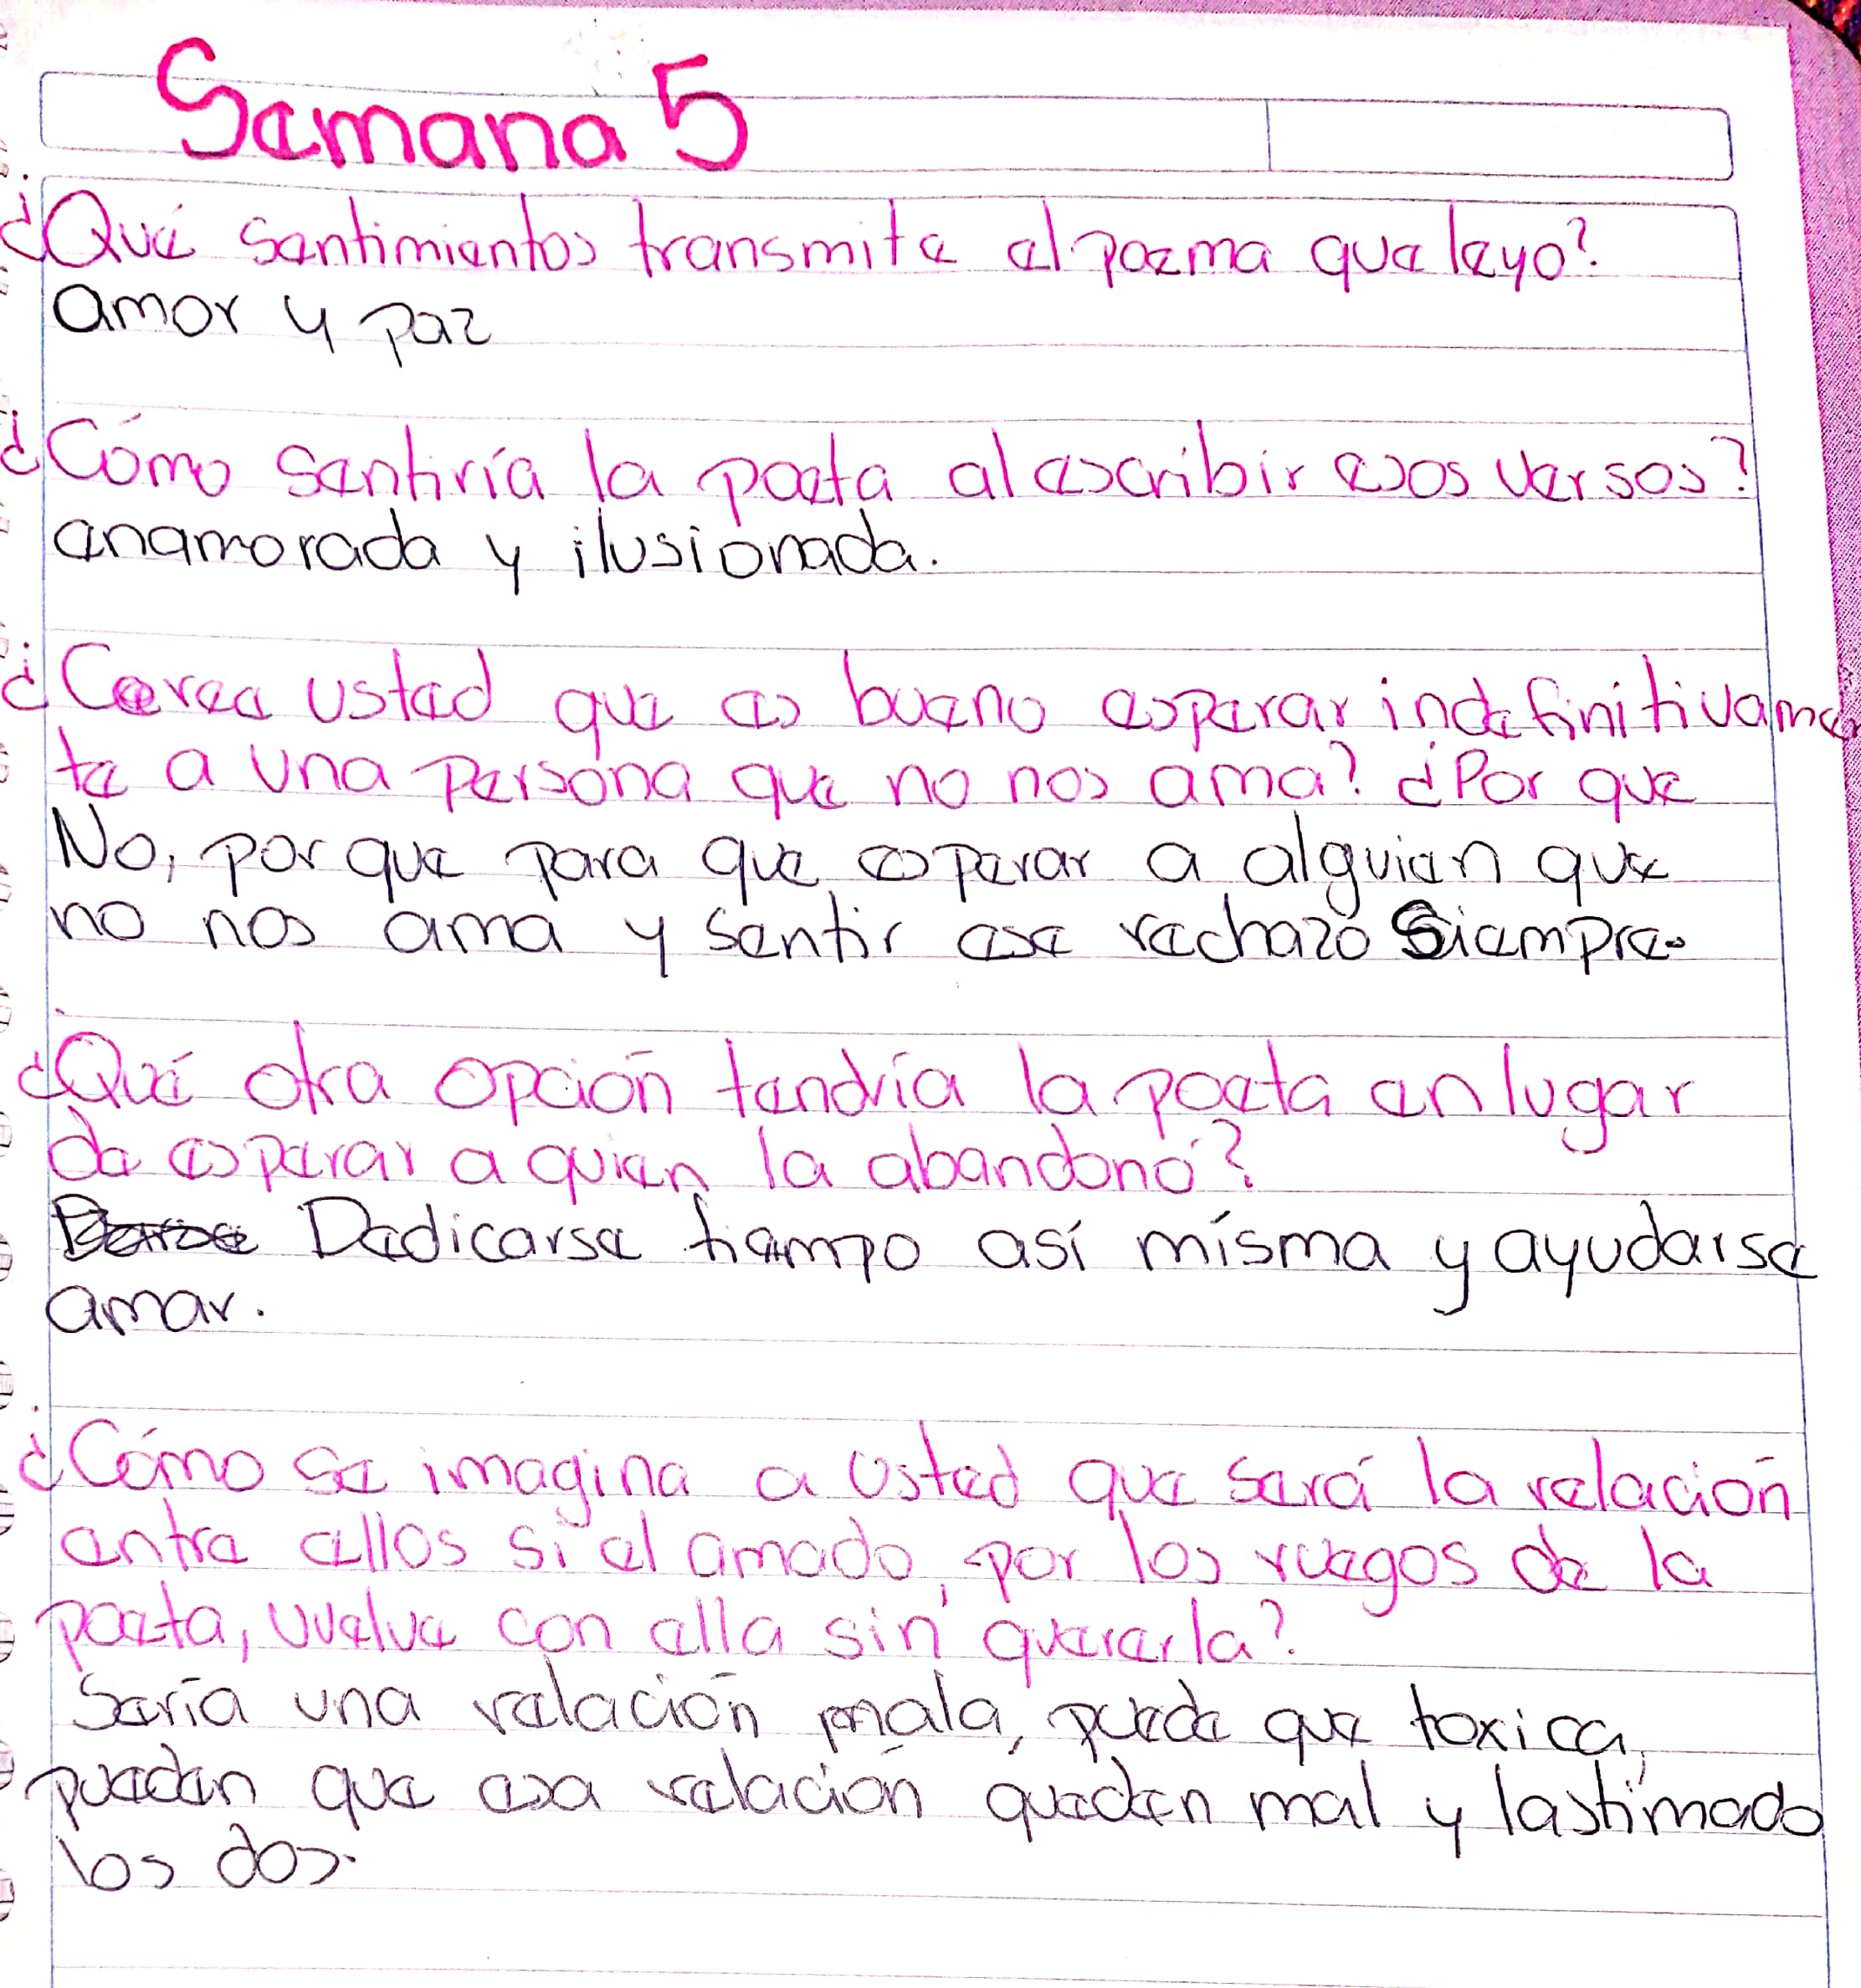 Semana 5
¿Qué sentimientos transmite el poema que leyo?
amor y paz
¿Cómo sentiría la poeta al escribir esos versos?
enamorada y ilusionada.
¿Ceree usted que es bueno esperar indefinitivamen
te a una persona que no nos ama? ¿Por que
No, por que para que esperar a alguien que
no nos ama y sentir ese rechazo Siempre.
¿Qué otra opción tendría la poeta en lugar
de esperar a quien la abandonó?
Dedicarse tiempo así misma y ayudarse
amar.
¿Cómo se imagina a usted que será la relación
entre ellos si el amado, por los ruegos de la
poeta, vuelve con ella sin quererla?
Sería una relación mala, puede que toxica,
pueden que esa relación queden mal y lastimado
los dos.